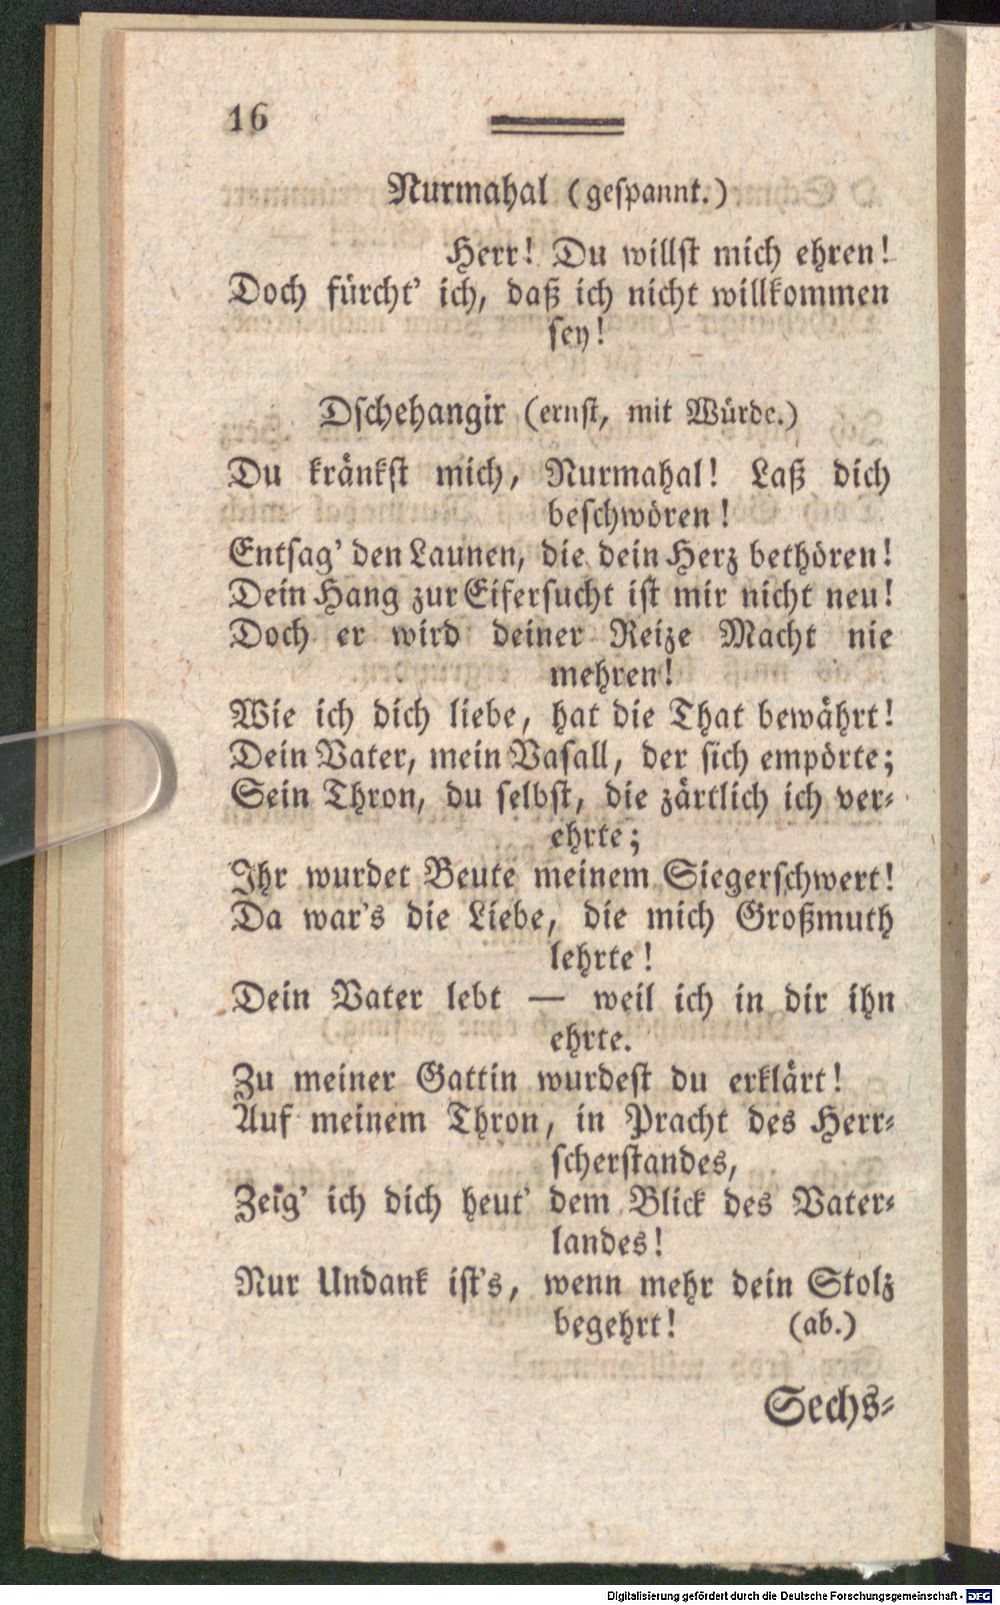 16
Nurmahal (gespannt.)
Herr! Du willst mich ehren!
Doch fürcht' ich, daß ich nicht willkommen
sey!
Dschehangir (ernst, mit Würde.)
Du kränkst mich, Nurmahal! Laß dich
beschwören!
Entsag' den Launen, die dein Herz bethören!
Dein Hang zur Eifersucht ist mir nicht neu!
Doch er wird deiner Reize Macht nie
mehren!
Wie ich dich liebe, hat die That bewährt!
Dein Vater, mein Vasall, der sich empörte;
Sein Thron, du selbst, die zärtlich ich ver-
ehrte;
Ihr wurdet Beute meinem Siegerschwert!
Da war's die Liebe, die mich Großmuth
lehrte!
Dein Vater lebt — weil ich in dir ihn
ehrte.
Zu meiner Gattin wurdest du erklärt!
Auf meinem Thron, in Pracht des Herr-
scherstandes,
Zeig' ich dich heut' dem Blick des Vater-
landes!
Nur Undank ist's, wenn mehr dein Stolz
begehrt! (ab.)
Sechs-
Digitalisierung gefördert durch die Deutsche Forschungsgemeinschaft - DFG